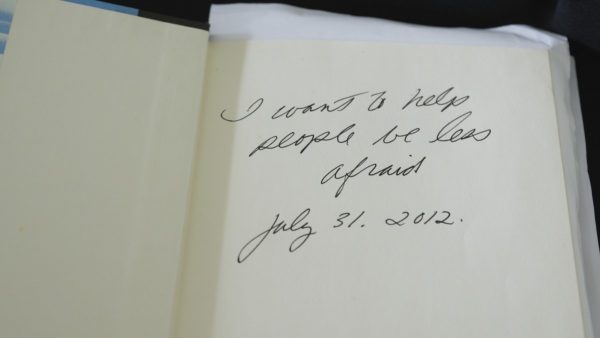 I want to help
people be less
afraid
July 31. 2012.